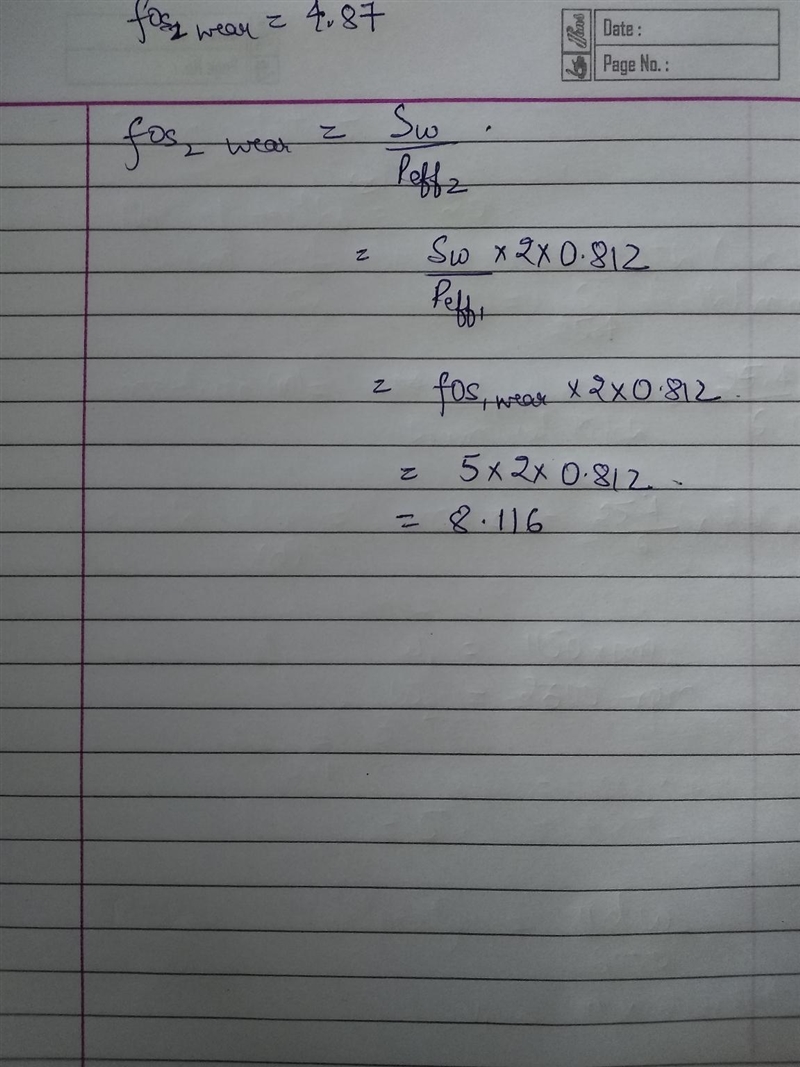 fos₂ wear = 4.87
Date :
Page No. :
fos₂ wear = Sw
Peff₂
= Sw × 2 × 0.812
Peff₁
= fos₁ wear × 2 × 0.812
= 5 × 2 × 0.812
= 8.116